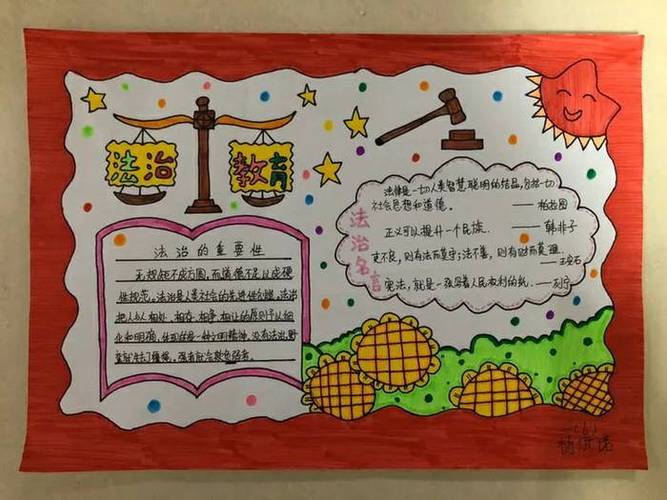 法治
教育
法治的重要性
无规矩不成方圆,而道德不足以成硬
性规范。法治是人类社会的先进
把人从人相处、相存、相争、相让的原则予以细
化和明确,体现的是一种文明精神,没有法治野
蛮就法门横领,强者就会欺负弱者。
法治名言
法律是一切人类智慧聪明的结晶,包括一切
社会思想和道德。
——柏拉图
正义可以提升一个民族. ——韩非子
吏不良,则有法而莫守;法不善,则有财而莫理.
——王安石
宪法,就是一张写着人民权利的纸. ——列宁
一(6)